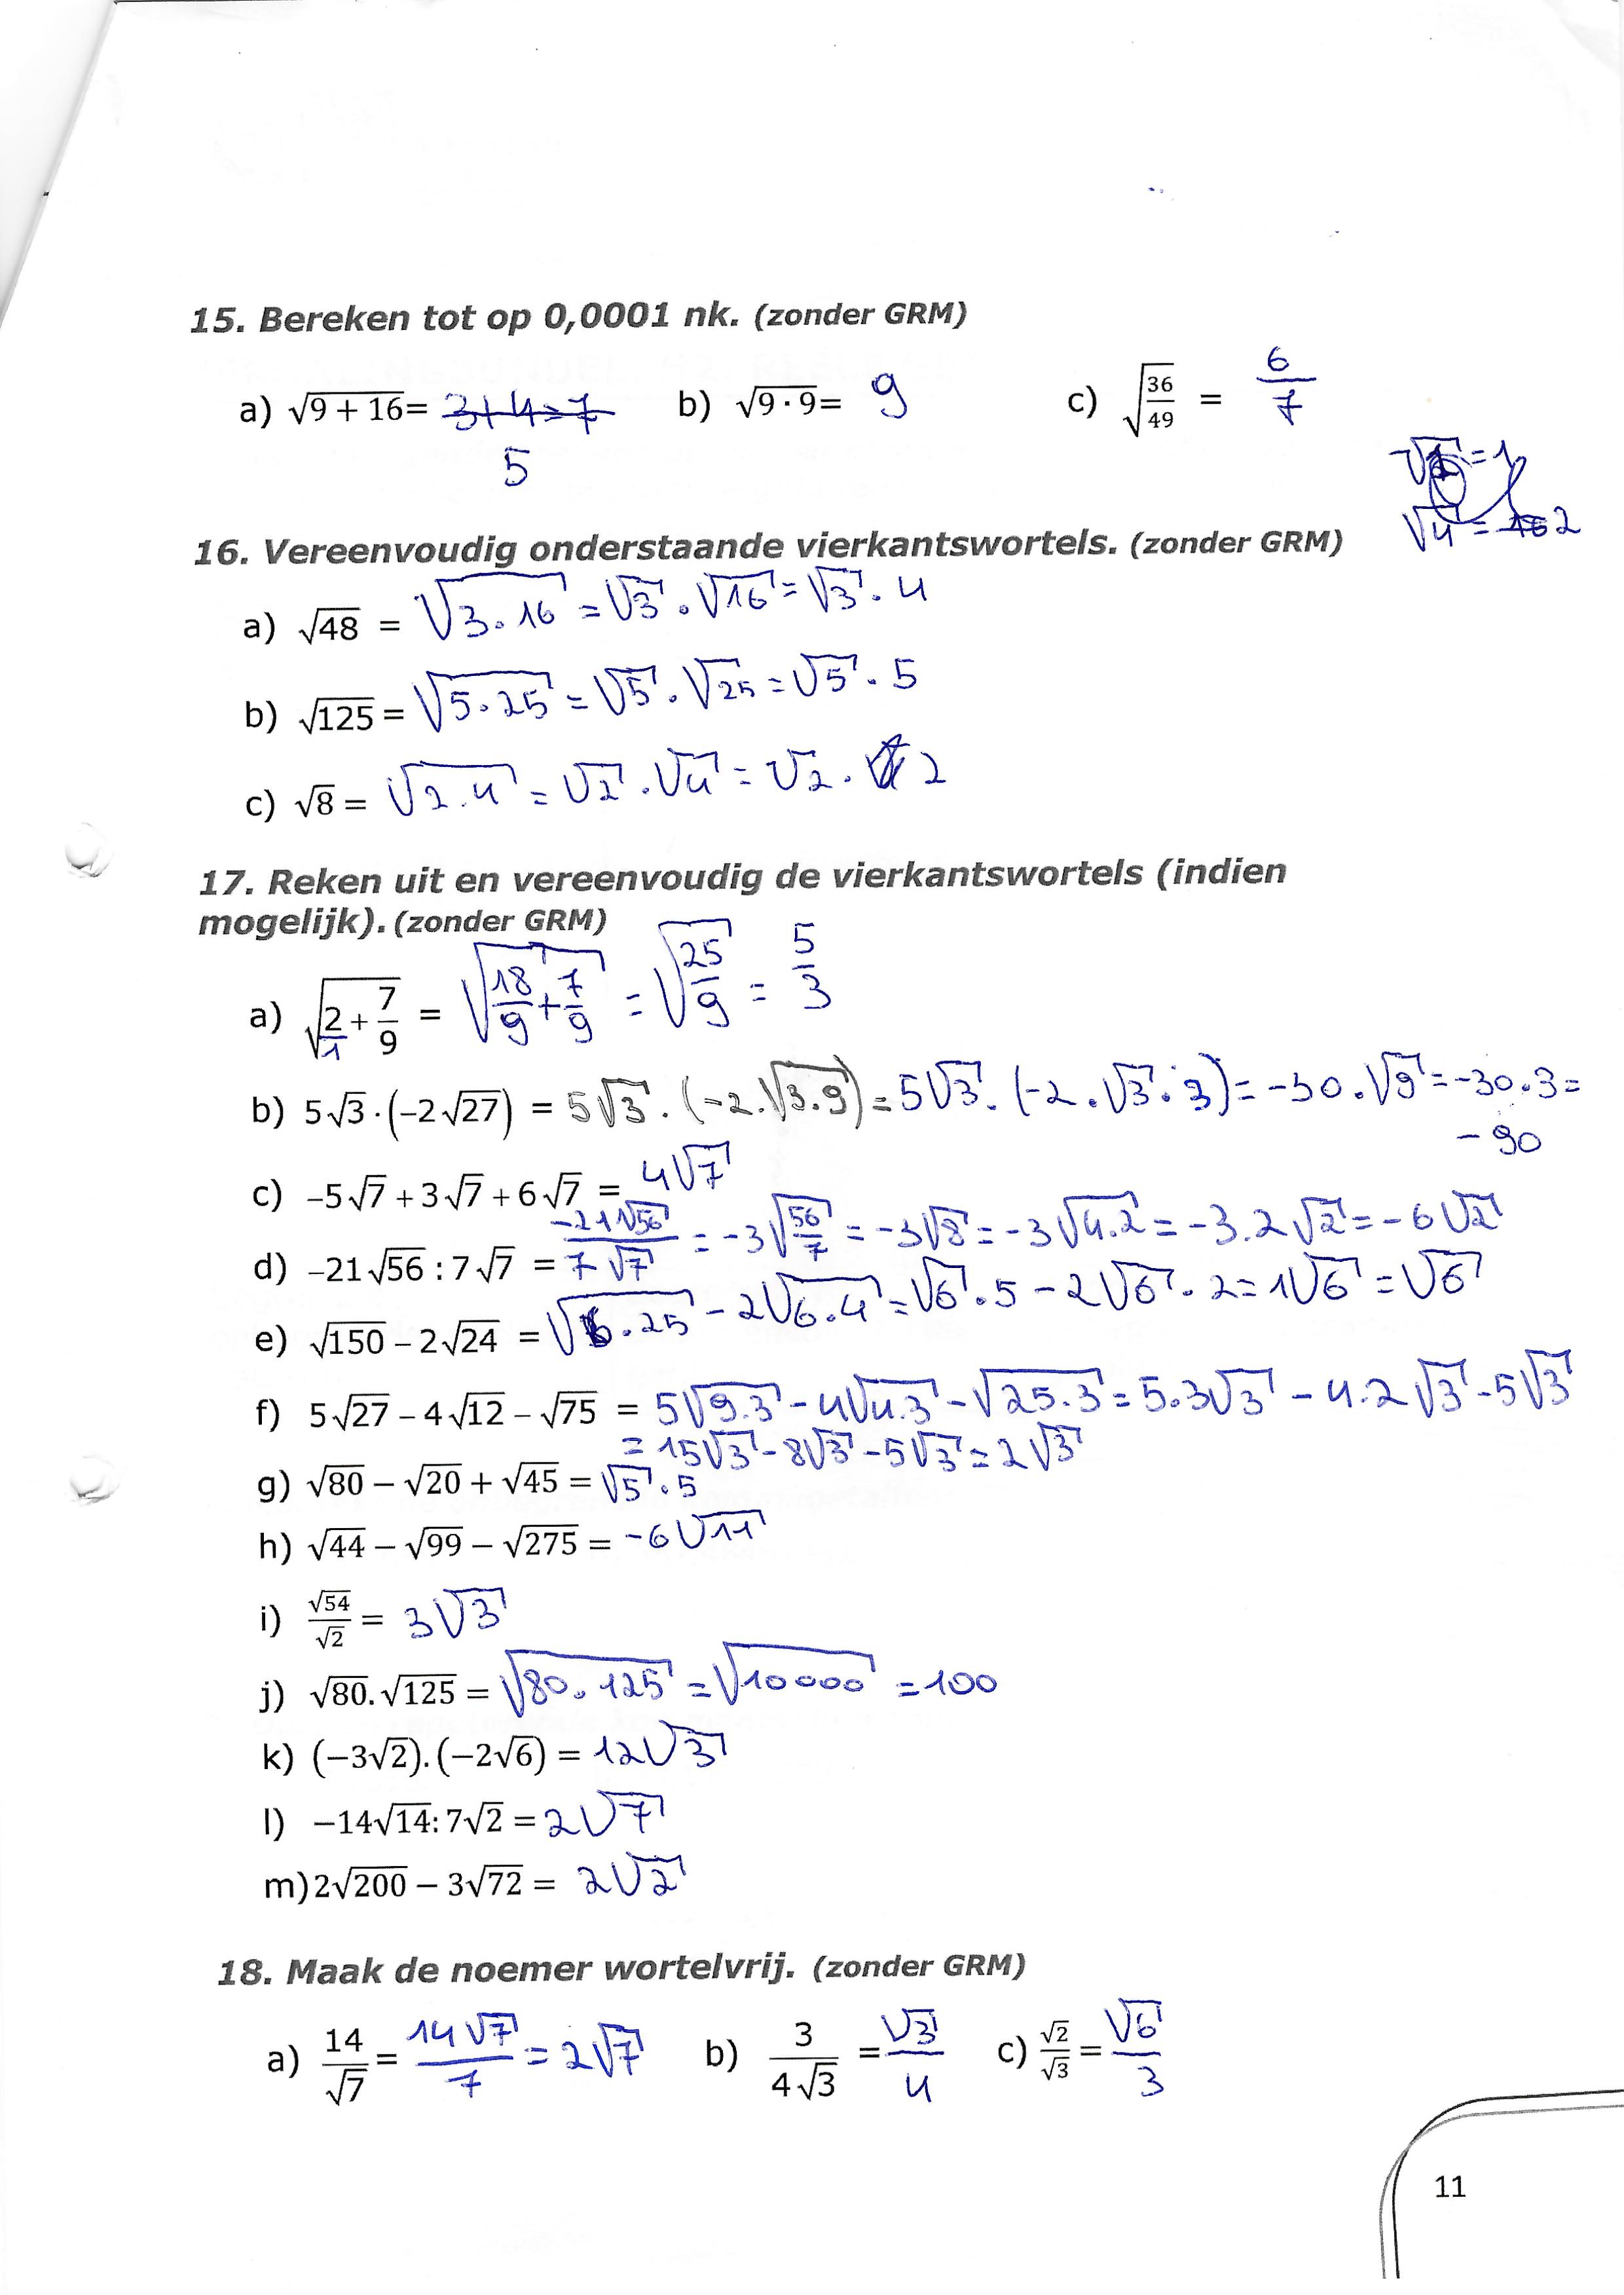 15. Bereken tot op 0,0001 nk. (zonder GRM)
a) √(9 + 16) = 3+4=7 b) √(9 · 9) = 9 c) √(36/49) = 6/7
5
√1 = 1
√4 = 2
16. Vereenvoudig onderstaande vierkantswortels. (zonder GRM)
a) √48 = √(3.16) = √3 . √16 = √3 . 4
b) √125 = √(5.25) = √5 . √25 = √5 . 5
c) √8 = √(2.4) = √2 . √4 = √2 . 2
17. Reken uit en vereenvoudig de vierkantswortels (indien
mogelijk). (zonder GRM)
a) √(2/1 + 7/9) = √(18/9 + 7/9) = √(25/9) = 5/3
b) 5√3 · (−2√27) = 5√3 . (−2.√(3.9)) = 5√3 . (−2 . √3 . 3) = −30 . √9 = −30 . 3 =
− 90
c) −5√7 + 3√7 + 6√7 = 4√7
d) −21√56 : 7√7 = −21√56 / 7√7 = −3√(56/7) = −3√8 = −3√(4.2) = −3.2√2 = −6√2
e) √150 − 2√24 = √(6.25) − 2√(6.4) = √6 . 5 − 2√6 . 2 = 1√6 = √6
f) 5√27 − 4√12 − √75 = 5√(9.3) − 4√(4.3) − √(25.3) = 5.3√3 − 4.2√3 − 5√3
= 15√3 − 8√3 − 5√3 = 2√3
g) √80 − √20 + √45 = √5 . 5
h) √44 − √99 − √275 = −6√11
i) √54/√2 = 3√3
j) √80.√125 = √(80.125) = √10000 = 100
k) (−3√2).(−2√6) = 12√3
l) −14√14: 7√2 = 2√7
m) 2√200 − 3√72 = 2√2
18. Maak de noemer wortelvrij. (zonder GRM)
a) 14/√7 = 14√7/7 = 2√7 b) 3/(4√3) = √3/4 c) √2/√3 = √6/3
11